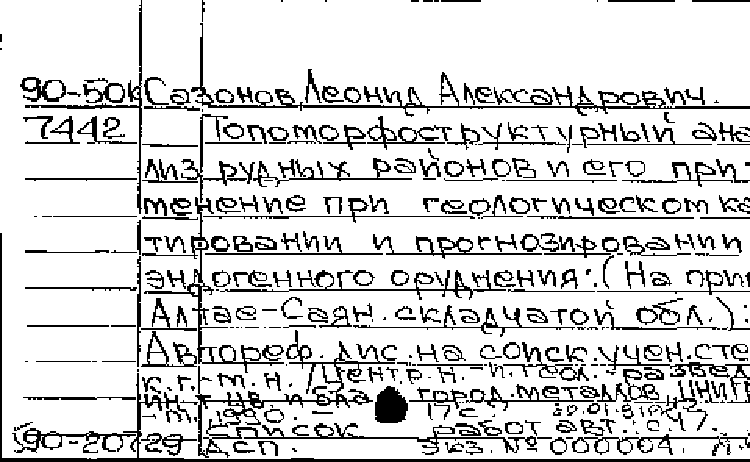 90-50к Сазонов, Леонид Александрович.
7442 Топоморфоструктурный ана
лиз рудных районов и его при-
менение при геологическом ка
тировании и прогнозировании
эндогенного оруднения: (На прим
Алтае-Саян. складчатой обл.):
Автореф. дис. на соиск. учен. сте
к.г.-м.н. / Центр. н.-и. геол.-развед
ин-т цв. и благород. металлов, ЦНИГ
-М., 1990. - 17 с
Список работ авт.: с. 17.
90-20729 ДСП. Экз. № 000004.